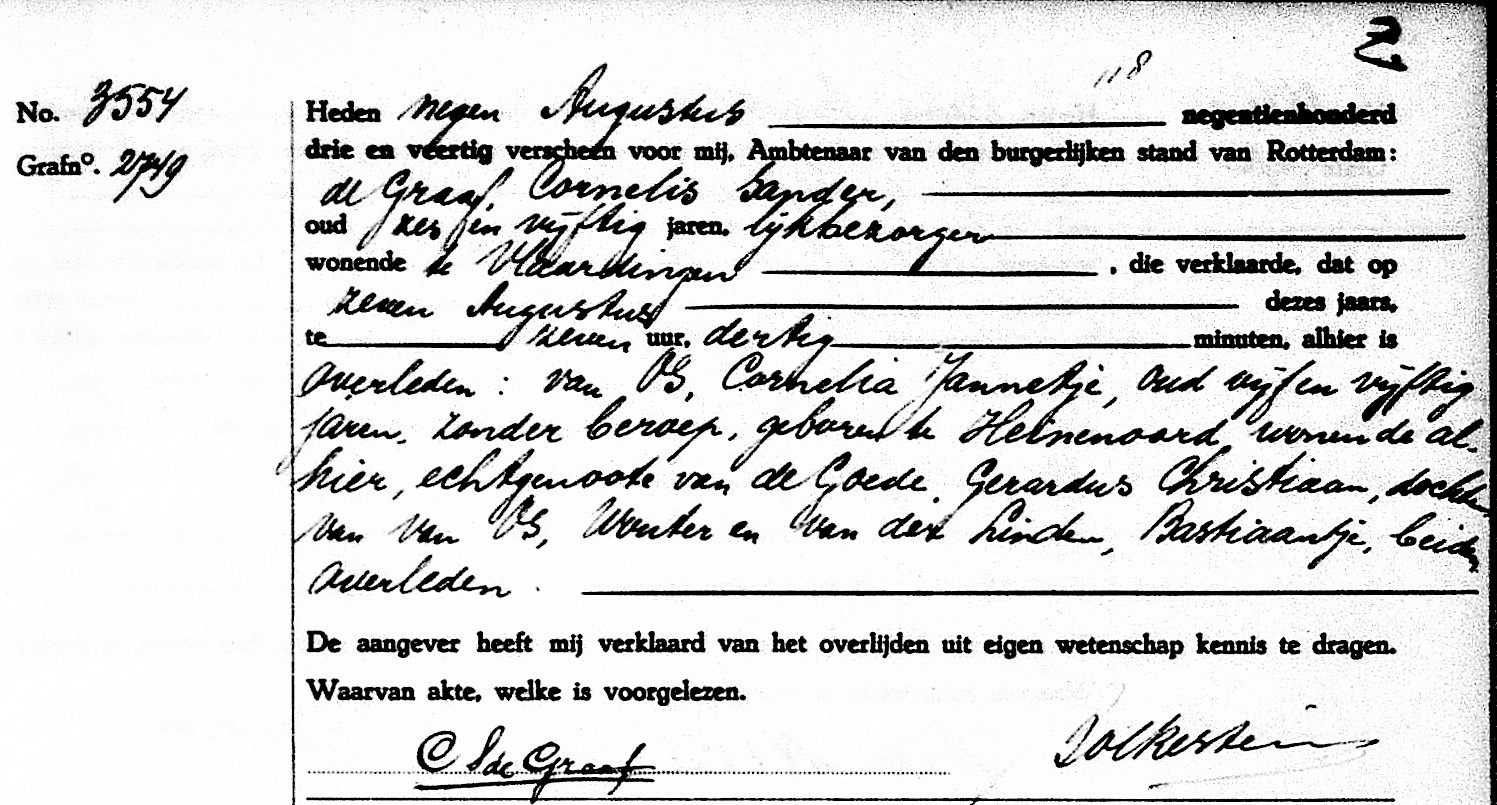 2.
118
No. 3554
Grafno. 2749
Heden negen Augustus negentienhonderd
drie en veertig verscheen voor mij, Ambtenaar van den burgerlijken stand van Rotterdam:
de Graaf, Cornelis Sander,
oud zes en vijftig jaren, lijkbezorger
wonende te Vlaardingen , die verklaarde, dat op
zeven Augustus dezes jaars,
te zeven uur, dertig minuten, alhier is
overleden : van OS, Cornelia Jannetje, oud vijf en vijftig
jaren, zonder beroep, geboren te Heinenoord, wonende al-
hier, echtgenoote van de Goede, Gerardus Christiaan, dochter
van van OS, Wouter en van der Linden, Bastiaantje, beiden
overleden.
De aangever heeft mij verklaard van het overlijden uit eigen wetenschap kennis te dragen.
Waarvan akte, welke is voorgelezen.
C S de Graaf